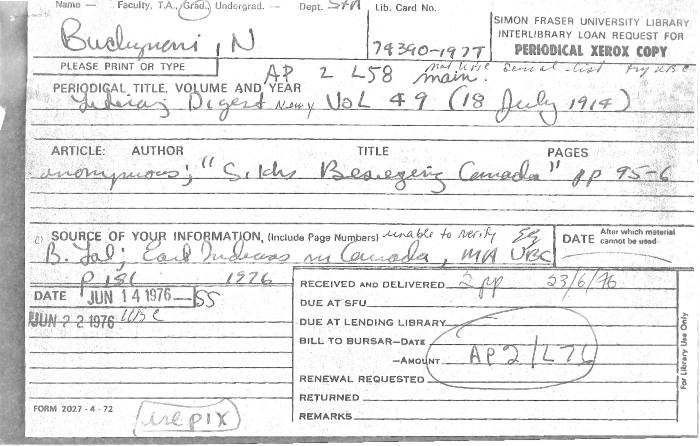 Name — Faculty, T.A., Grad., Undergrad. — Dept. Lib. Card No.
N 74390-1977
SIMON FRASER UNIVERSITY LIBRARY
INTERLIBRARY LOAN REQUEST FOR
PERIODICAL XEROX COPY
PLEASE PRINT OR TYPE
AP 2 L58 main.
PERIODICAL TITLE, VOLUME AND YEAR
Literary Digest New York VOL 49 (18 July 1914)
ARTICLE: AUTHOR TITLE PAGES
anonymous; "Sikhs Besieging Canada" pp 95-6
SOURCE OF YOUR INFORMATION, (Include Page Numbers) unable to verify
DATE After which material cannot be used
B. Lal; East Indians in Canada, MA UBC
p 181 1976
DATE JUN 14 1976 SS
JUN 22 1976 UBC
RECEIVED AND DELIVERED 2 pp 23/6/76
DUE AT SFU
DUE AT LENDING LIBRARY
BILL TO BURSAR—DATE
—AMOUNT AP2/L76
RENEWAL REQUESTED
RETURNED
REMARKS
For Library Use Only
FORM 2027-4-72